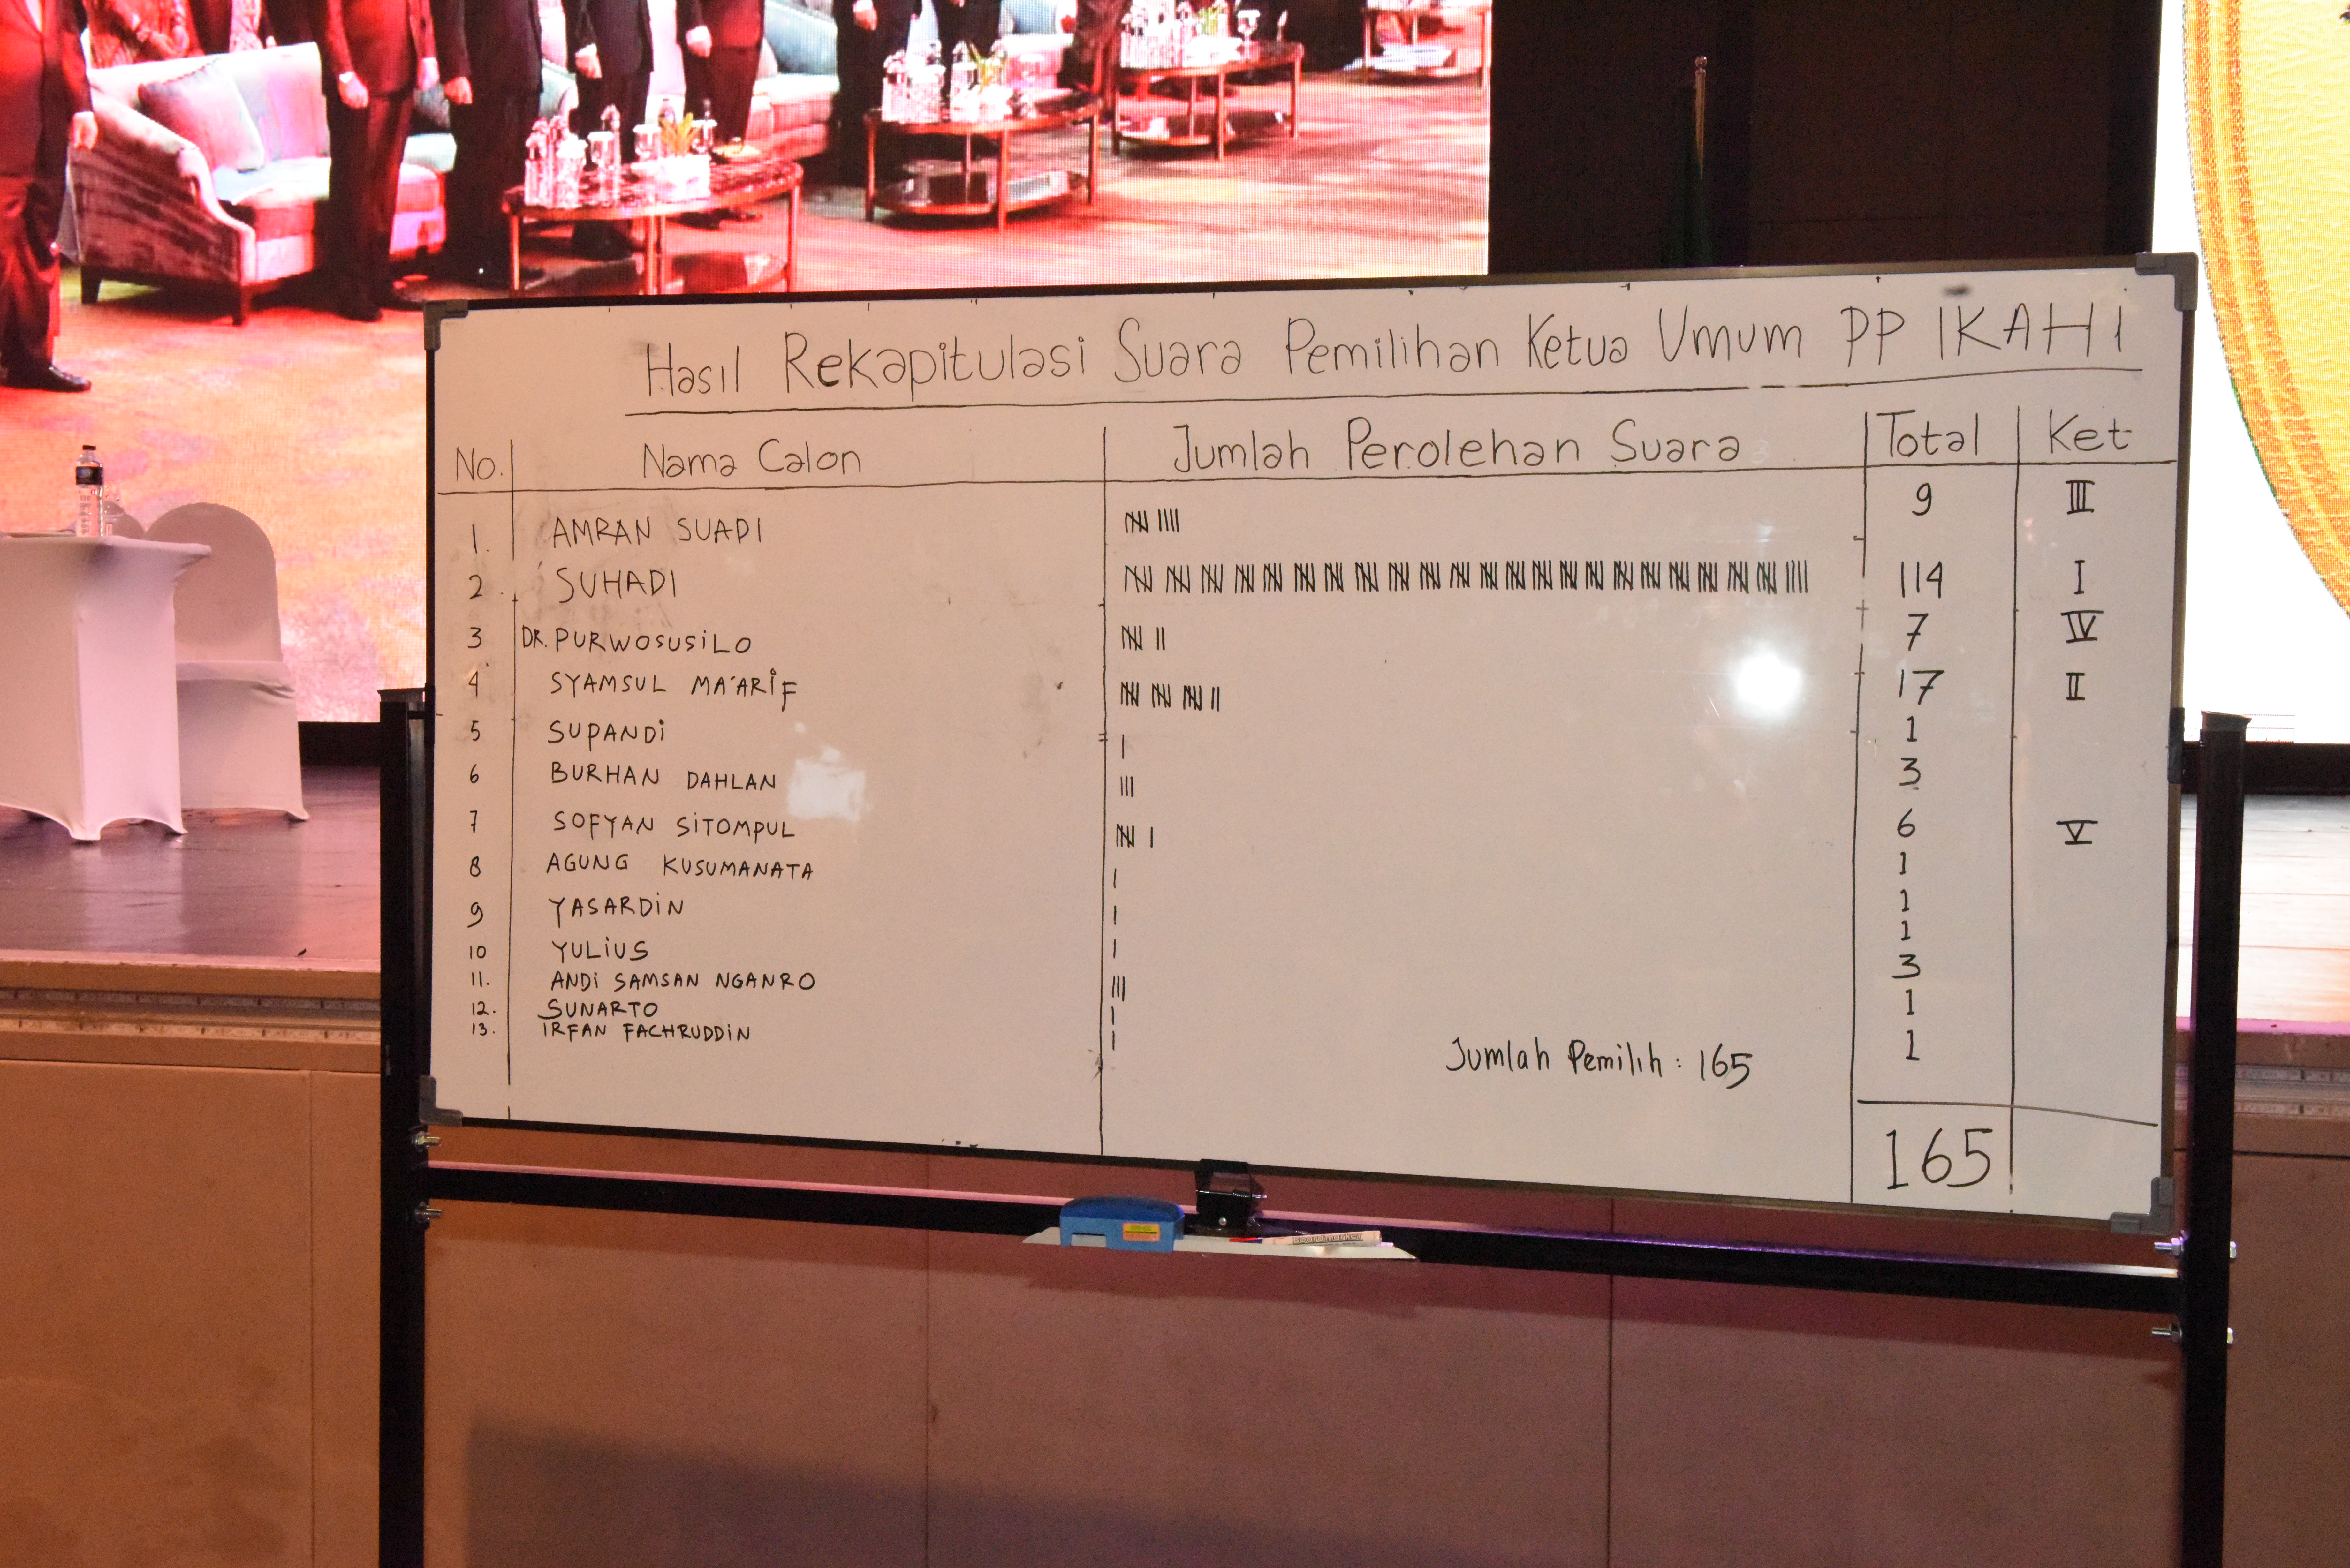 Hasil Rekapitulasi Suara Pemilihan Ketua Umum PP IKAHI
No. Nama Calon Jumlah Perolehan Suara Total Ket
1. AMRAN SUADI 9 III
2. SUHADI 114 I
3 DR. PURWOSUSiLO 7 IV
4 SYAMSUL MA'ARiF 17 II
5 SUPANDi 1
6 BURHAN DAHLAN 3
7 SOFYAN SiTOMPUL 6 V
8 AGUNG KUSUMANATA 1
9 YASARDiN 1
10 YULiUS 1
11. ANDi SAMSAN NGANRO 3
12. SUNARTO 1
13. IRFAN FACHRUDDiN 1
Jumlah Pemilih : 165
165